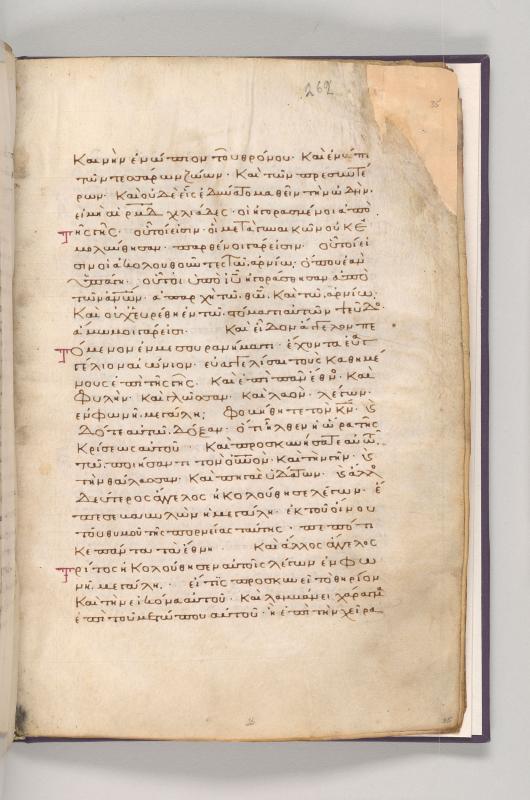 262
35
Καινὴν ἐνώπιον τοῦ θρόνου· Καὶ ἐνώπι
τῶν τεσσάρων ζώων· Καὶ τῶν πρεσβυτέ
ρων· Καὶ οὐδεὶς ἐδύνατο μαθεῖν τὴν ὠδὴν·
εἰ μὴ αἱ ρμδ χιλιάδες· οἱ ἠγορασμένοι ἀπὸ
τῆς γῆς· οὗτοί εἰσιν· οἱ μετὰ γυναικῶν οὐκ ἐ
μολύνθησαν· παρθένοι γάρ εἰσιν· οὗτοί εἰ
σιν οἱ ἀκολουθοῦντες τῶ ἀρνίω· ὅπου ἐὰν
ὑπάγη· οὗτοι ὑπὸ ιυ ἠγοράσθησαν ἀπὸ
τῶν ανων· ἀπαρχὴ τῶ θω· Καὶ τῶ ἀρνίω·
Καὶ οὐχ εὑρέθη ἐν τῶ στόματι αὐτῶν ψεῦδο
ἄμωμοι γάρ εἰσι· Καὶ εἶδον ἄγγελον πε
τόμενον ἐν μεσουρανήματι· ἔχοντα εὐαγ
γέλιον αἰώνιον· εὐαγγελίσαι τοὺς καθημέ
νους ἐπὶ τῆς γῆς· Καὶ ἐπὶ πᾶν ἔθνο· Καὶ
φυλὴν· Καὶ γλῶσσαν· Καὶ λαὸν· λέγων·
ἐν φωνῆ μεγάλη; φοβήθητε τὸν κν· Καὶ
δότε αὐτῶ δόξαν· ὅτι ἦλθεν ἡ ὥρα τῆς
κρίσεως αὐτοῦ· Καὶ προσκυνήσατε αὐτῶ
τῶ ποιήσαντι τὸν ουνον· Καὶ τὴν γῆν· Καὶ
τὴν θάλασσαν· Καὶ πηγὰς ὑδάτων· Καὶ ἄλλο
δεύτερος ἄγγελος ἠκολούθησε λέγων· ἔ
πεσε βαβυλὼν ἡ μεγάλη· ἐκ τοῦ οἴνου
τοῦ θυμοῦ τῆς πορνείας ταύτης· πεπότι
κε πάντα τὰ ἔθνη· Καὶ ἄλλος ἄγγελος
τρίτος ἠκολούθησεν αὐτοῖς λέγων ἐν φω
νῆ μεγάλη· εἴ τις προσκυνεῖ τὸ θηρίον
Καὶ τὴν εἰκόνα αὐτοῦ· Καὶ λαμβάνει χάραγμ
ἐπὶ τοῦ μετώπου αὐτοῦ· ἢ ἐπὶ τὴν χεῖρα